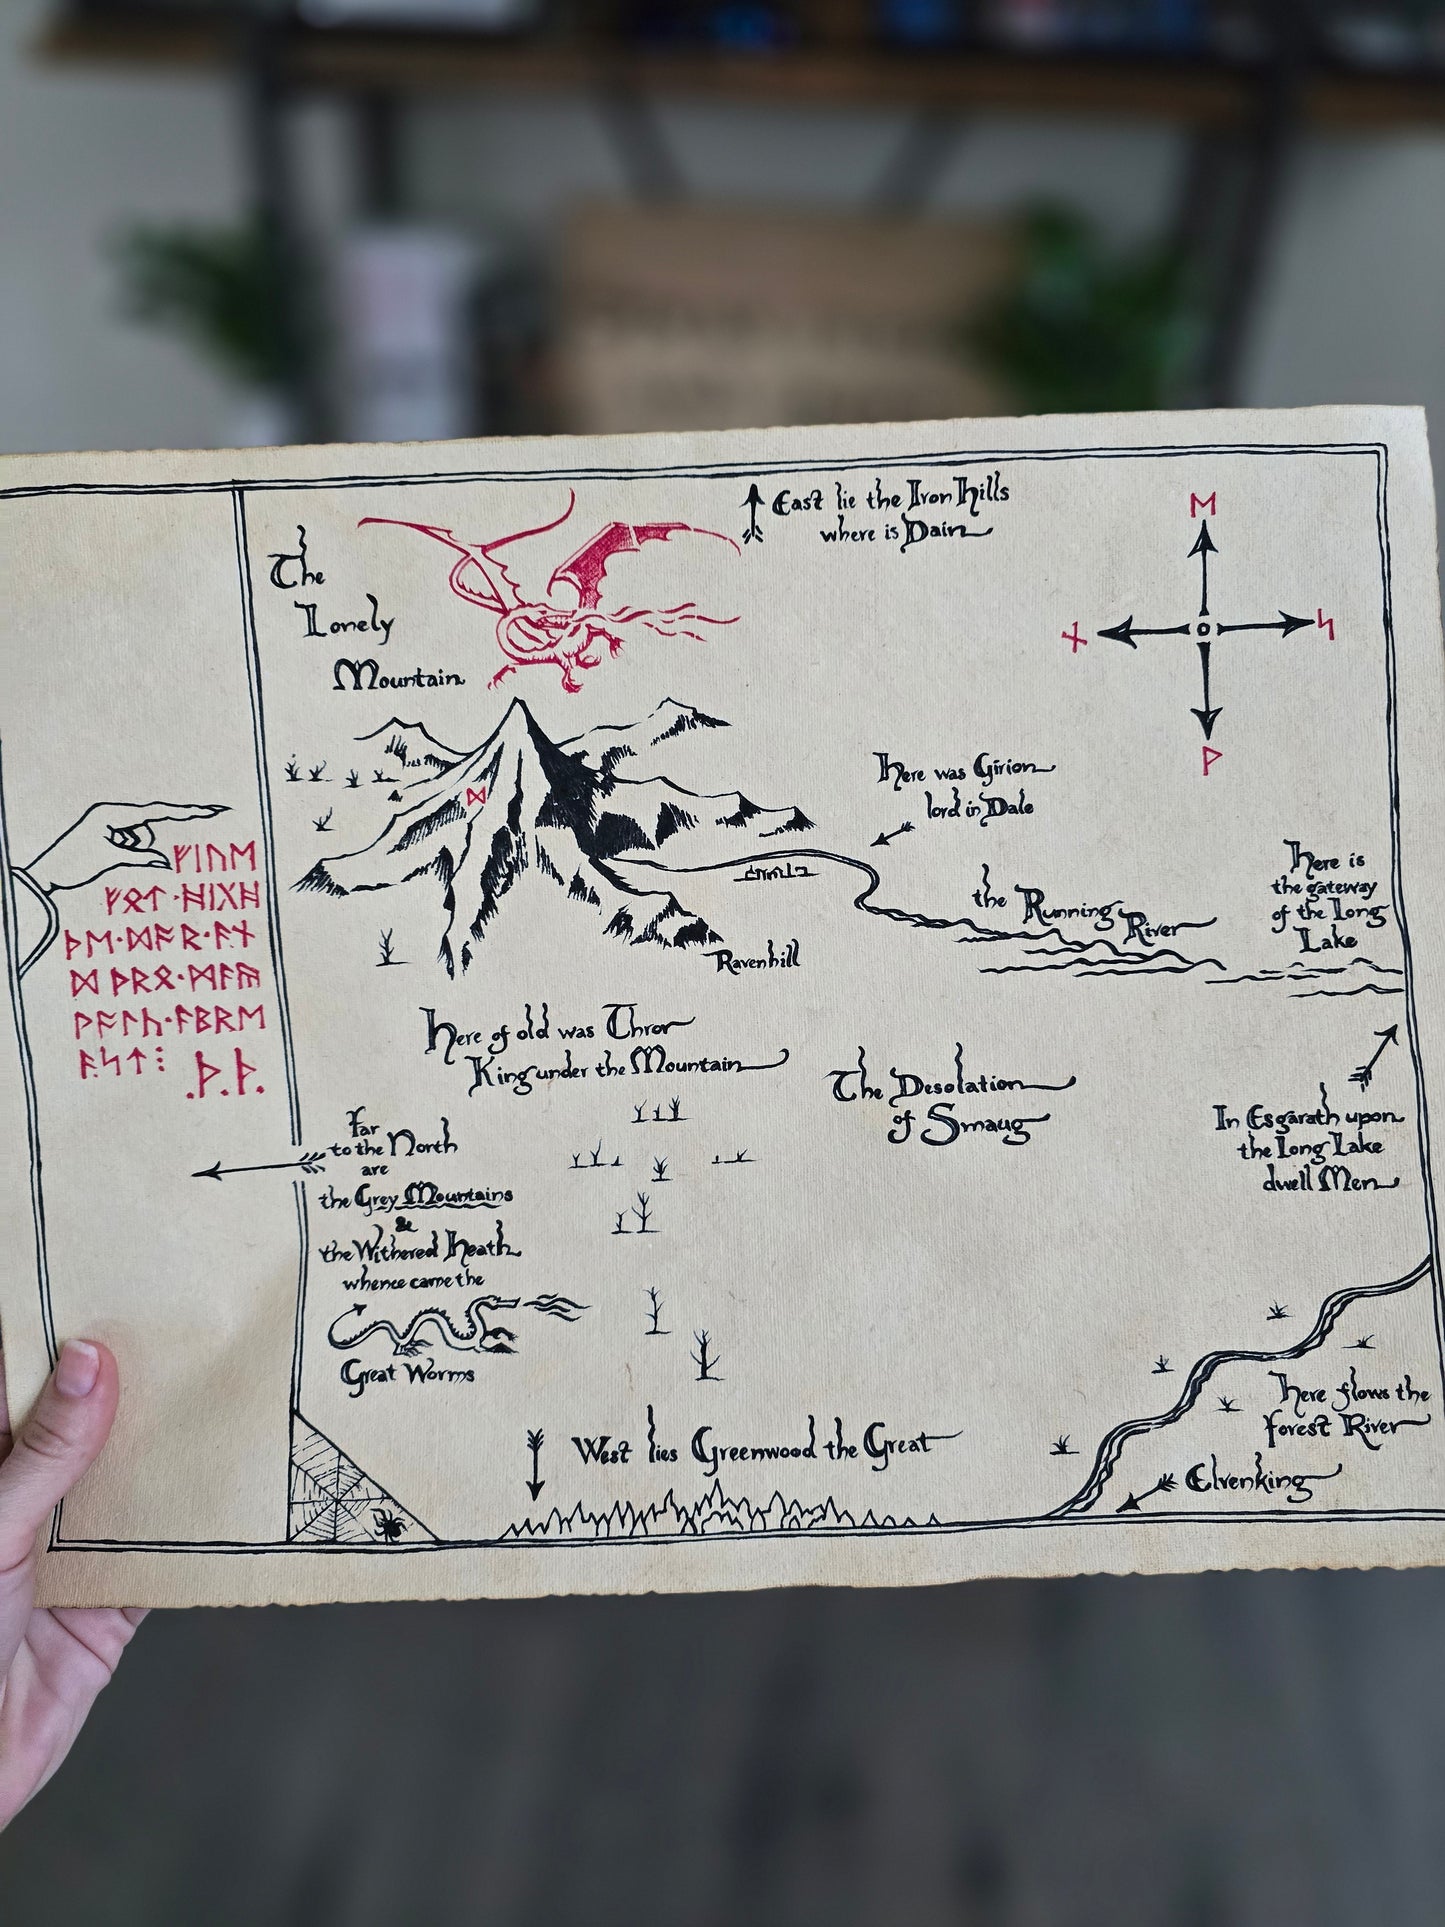 East lie the Iron Hills
where is Dain
The
Lonely
Mountain
ᛖ
ᚾ
ᛋ
ᚹ
ᛞ
Here was Girion
lord in Dale
the Running River
Here is
the gateway
of the Long
Lake
Ravenhill
ᚠᛁᚢᛖ
ᚠᛟᛏ·ᚻᛁᚷᚻ
ᚦᛖ·ᛞᚩᚱ·ᚪᚾ
ᛞ ᚦᚱᛟ·ᛗᚪᚣ
ᚹᚪᛚᚳ·ᚪᛒᚱᛖ
ᚪᛋᛏ⫶ .ᚦ.ᚦ.
Here of old was Thror
King under the Mountain
The Desolation
of Smaug
In Esgarath upon
the Long Lake
dwell Men
Far
to the North
are
the Grey Mountains
&
the Withered Heath
whence came the
Great Worms
Here flows the
Forest River
West lies Greenwood the Great
Elvenking